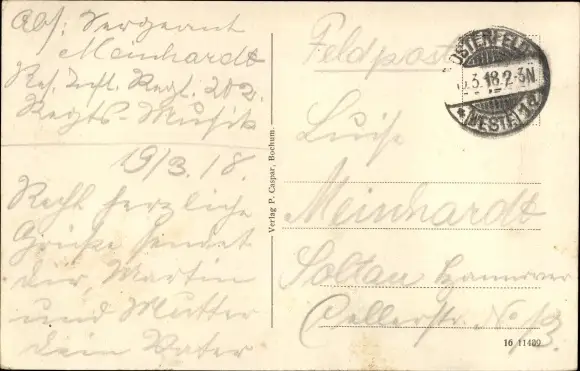 Abs: Sergeant
Meinhardt
Res. Inft. Regt. 202.
Regts-Musik
19/3.18.
Recht herzliche
Grüße sendet
dir, Martin
und Mutter
dein Vater
Verlag P. Caspar, Bochum.
Feldpost
OSTERFELD
.3.18.2-3N.
* (WESTF.) *
Luise
Meinhardt
Soltau Hannover
Cellerstr. No 13.
16 11489